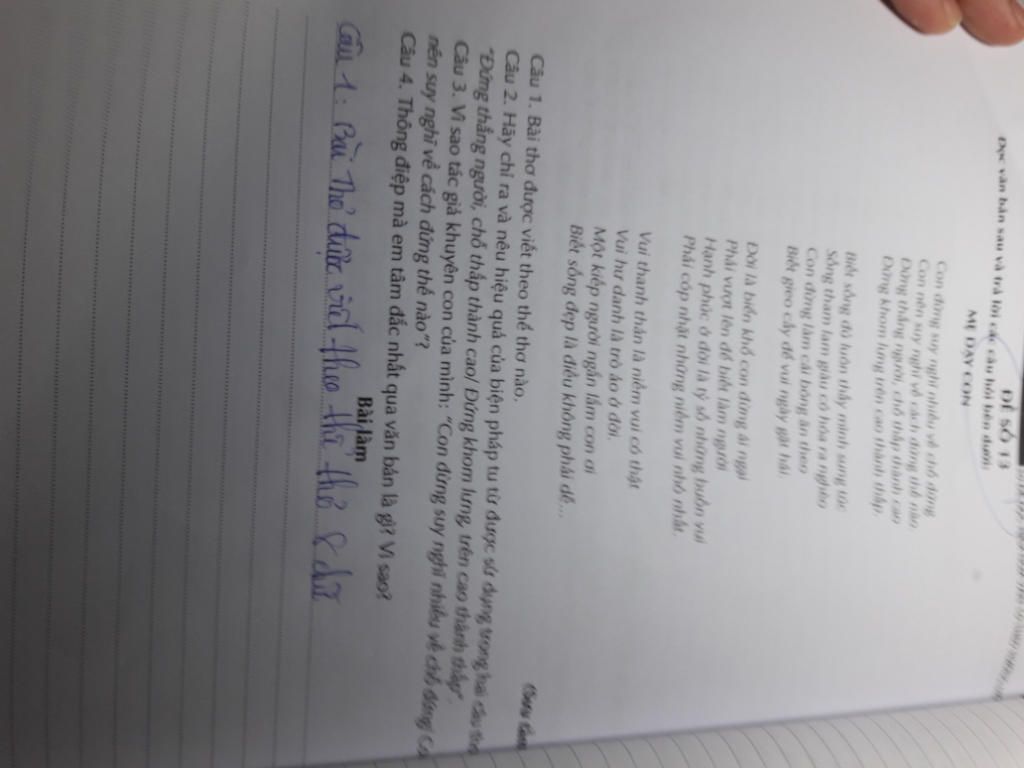 ĐỀ SỐ 13
Đọc văn bản sau và trả lời các câu hỏi bên dưới:
MẸ DẠY CON
Con đừng suy nghĩ nhiều về chỗ đứng
Con nên suy nghĩ về cách đứng thế nào
Đứng thẳng người, chỗ thấp thành cao
Đứng khom lưng trên cao thành thấp.
Biết sống đủ luôn thấy mình sung túc
Sống tham lam giàu có hóa ra nghèo
Con đừng làm cái bống ăn theo
Biết gieo cấy để vui ngày gặt hái.
Đời là biển khổ con đừng ái ngại
Phải vượt lên để biết làm người
Hạnh phúc ở đời là tỷ số những buồn vui
Phải cóp nhặt những niềm vui nhỏ nhất.
Vui thanh thản là niềm vui có thật
Vui hư danh là trò ảo ở đời.
Một kiếp người ngắn lắm con ơi
Biết sống đẹp là điều không phải dễ...
Câu 1. Bài thơ được viết theo thể thơ nào.
Câu 2. Hãy chỉ ra và nêu hiệu quả của biện pháp tu từ được sử dụng trong hai câu thơ
"Đứng thẳng người, chỗ thấp thành cao/ Đứng khom lưng, trên cao thành thấp".
Câu 3. Vì sao tác giả khuyên con của mình: "Con đừng suy nghĩ nhiều về chỗ đứng/ Co
nên suy nghĩ về cách đứng thế nào"?
Câu 4. Thông điệp mà em tâm đắc nhất qua văn bản là gì? Vì sao?
Bài làm
Câu 1. Bài thơ được viết theo thể thơ 8 chữ